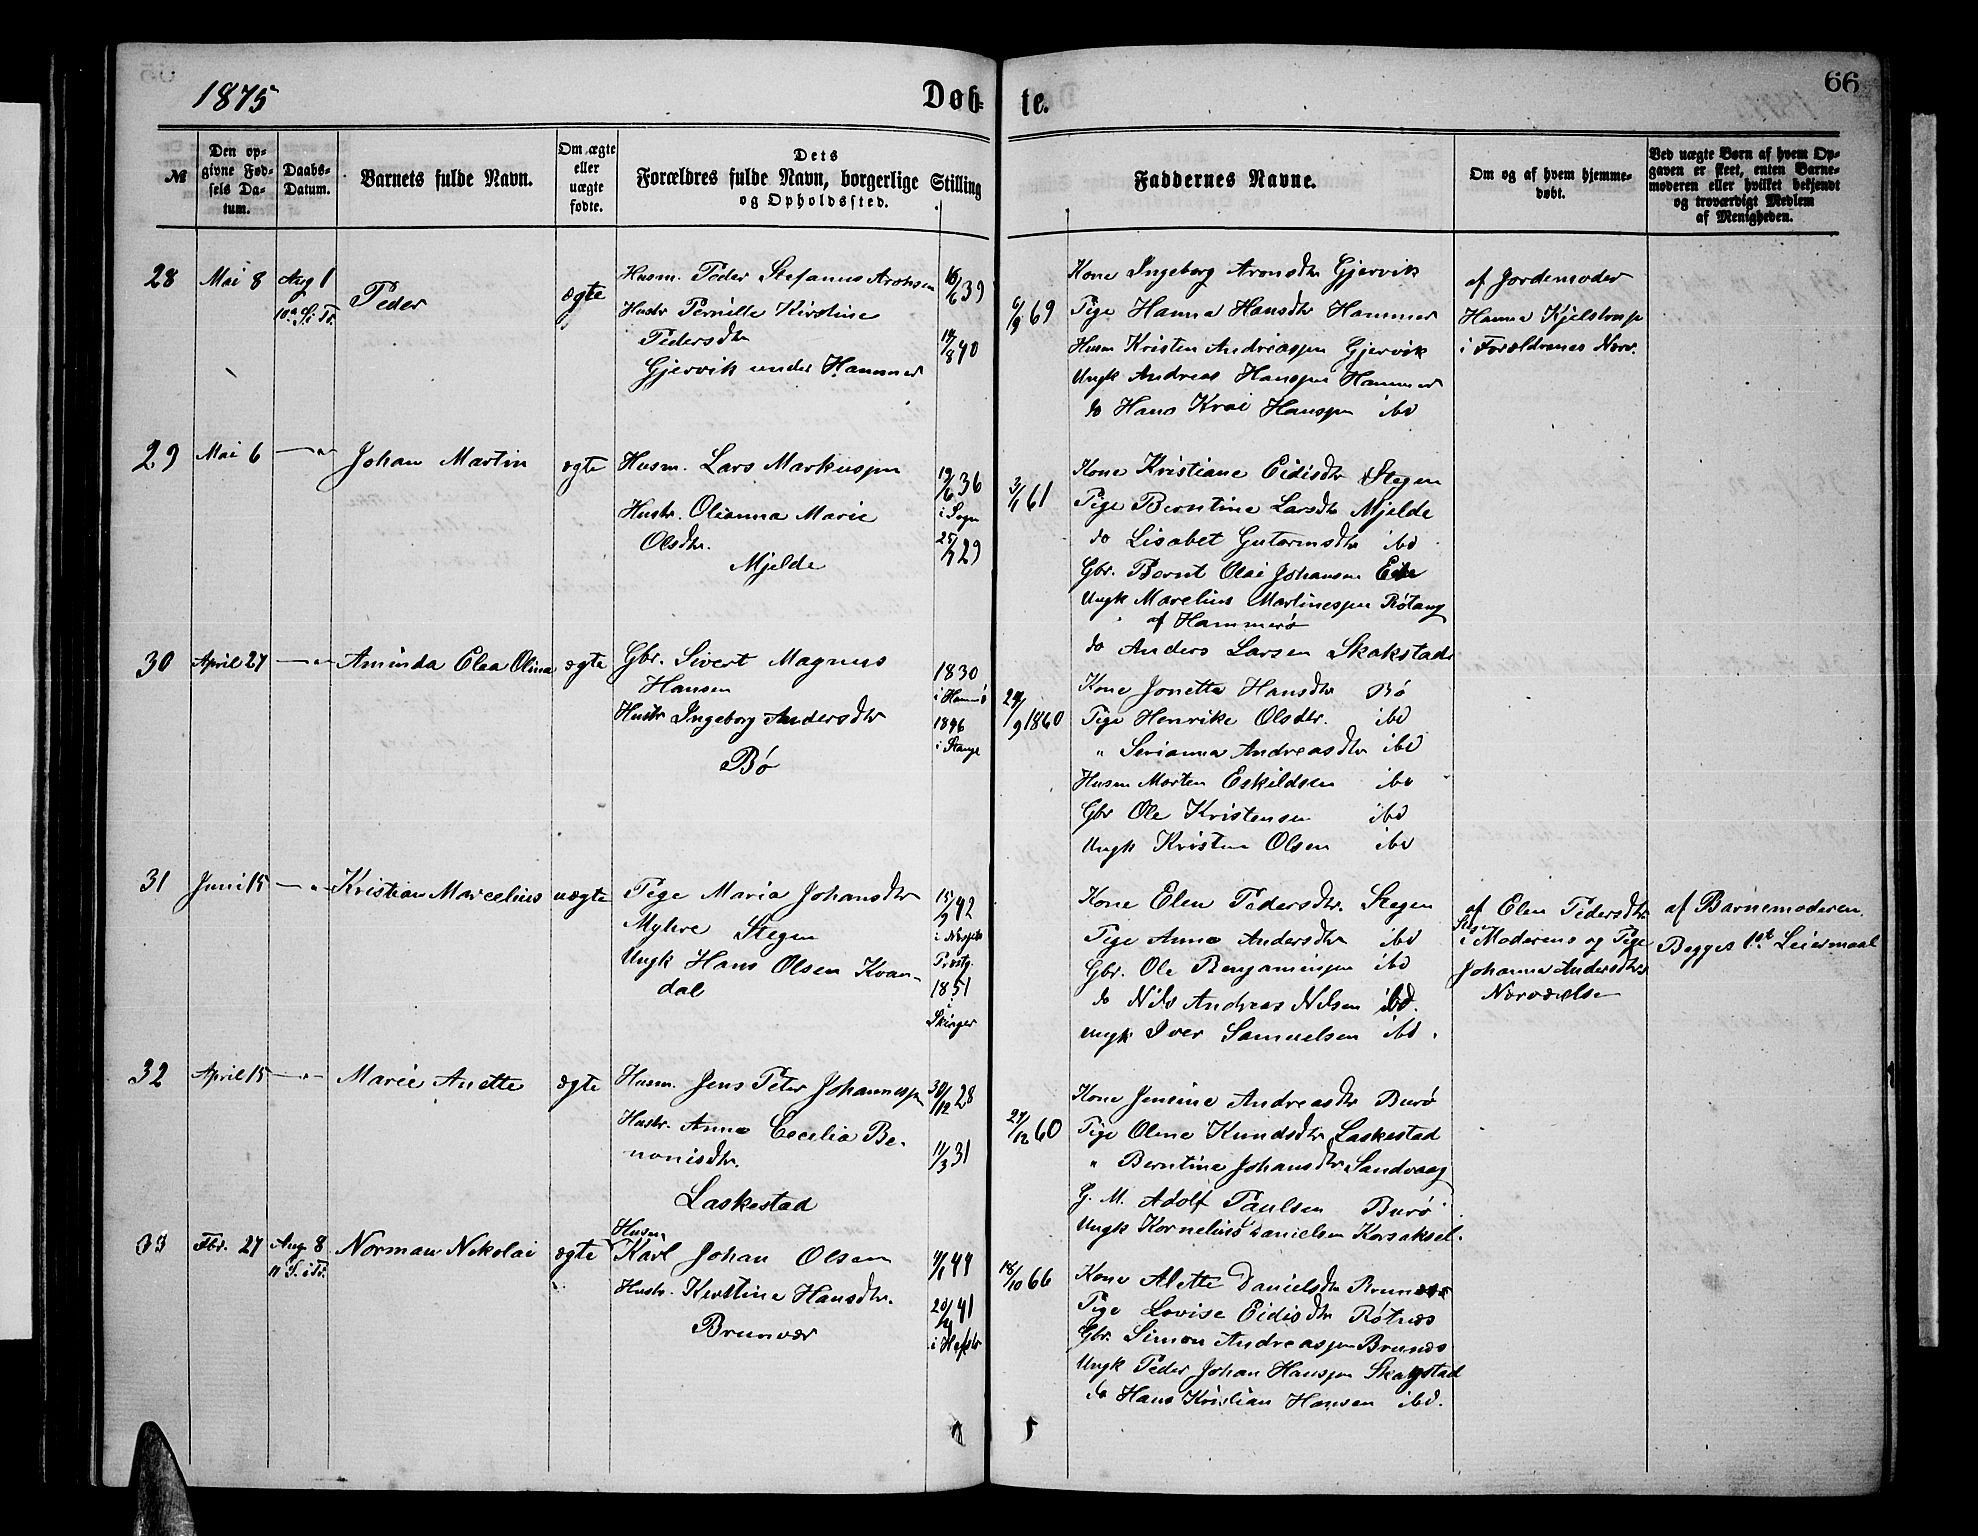 1875
Døb-
te.
66
№
Den op-
givne Fød-
sels Da-
tum.
Daabs-
Datum.
Barnets fulde Navn.
Om ægte
eller
uægte
fødte.
Dets
Forældres fulde Navn, borgerlige Stilling
og Opholdssted.
Faddernes Navne.
Om og af hvem hjemme-
døbt.
Ved uægte Børn af hvem Op-
gaven er skeet, enten Barne-
moderen eller hvilket bekjendt
og troværdigt Medlem
af Menigheden.
28 Mai 8 Aug 1 Peder ægte
10 S. i Tr.
Husm. Peder Stefanus Aronsen 16/6 39
Hustr Pernille Kirstine
Pedersdtr 19/8 40
Gjervik under Hammer
6/9 69
Kone Ingeborg Aronsdtr Gjervik
Pige Hanna Hansdtr Hammer
Husm Kristen Andreassen Gjervik
Ungk Andreas Hanssen Hammer
do Hans Krai Hanssen ibd
af Jordemoder
Hanna Kjelstrup
i Forældrenes Nærv.
29 Mai 6 —"— Johan Martin ægte
Husm. Lars Markussen 19/6 36
i Sogn
Hustr. Olianna Marie
Olsdtr. 29
Mjelde
3/1 61
Kone Kristiane Eidisdtr Stegen
Pige Berntine Larsdtr Mjelde
do Lisabet Gutormsdtr ibd
Gbr. Bernt Olai Johansen
Ungk Marelius Martinessen Røtang
af Hammerø
do Anders Larsen Skakstad
30 April 27 —"— Aminda Elea Olina ægte
Gbr. Sivert Magnus 1830
Hansen i Hammø
Hustr Ingeborg Andersdtr 1846
Bø
9 1860
Kone Jonetta Hansdtr Bø
Pige Henrike Olsdtr. ibd
" Serianna Andreasdtr ibd
Husm Morten Eskildsen ibd
Gbr Ole Kristensen ibd
Ungk Kristen Olsen ibd
31 Juni 15 —"— Kristian Marcelius uægte
Pige Maria Johansdtr 42
Myhre Stegen
Præstg.
Ungk Hans Olsen Kvan-
dal 1851
i
Kone Elen Pedersdtr. Stegen
Pige Anna Andersdtr ibd
Gbr. Ole Benjaminsen ibd
do Nils Andreas Nilsen ibd.
Ungk Iver Samuelsen ibd.
af Elen Pedersdtr
i Moderens og Pige
Johanna Andersdtrs
Nærværelse
af Barnemoderen.
Begges 1st Leiermaal
32 April 15 —"— Marie Anette ægte
Husm. Jens Peter Johannessen 30/12 28
Hustr. Anna Cecelia Be-
nonisdtr. 11/3 31
Laskestad
27/12 60
Kone Jensine Andreasdtr Burø
Pige Oline Knudsdtr Laskestad
" Berntine Johansdtr Sandvaag
G. M. Adolf Paulsen Burø
Ungk Kornelius Danielsen Korsaksel.
33 Fbr. 27 Aug 8 Norman Nikolai ægte
11 S. i Tr.
Husm
Karl Johan Olsen 44
Hustr. Kirstine Hansdtr. 41
Brunvær
18/10 66
Kone Alette Danielsdtr Brunæs
Pige Lovise Eidisdtr Røtnæs
Gbr. Simon Andreassen Brunæs
Ungk Peder Johan Hanssen Skagstad
do Hans Kristian Hansen ibd.